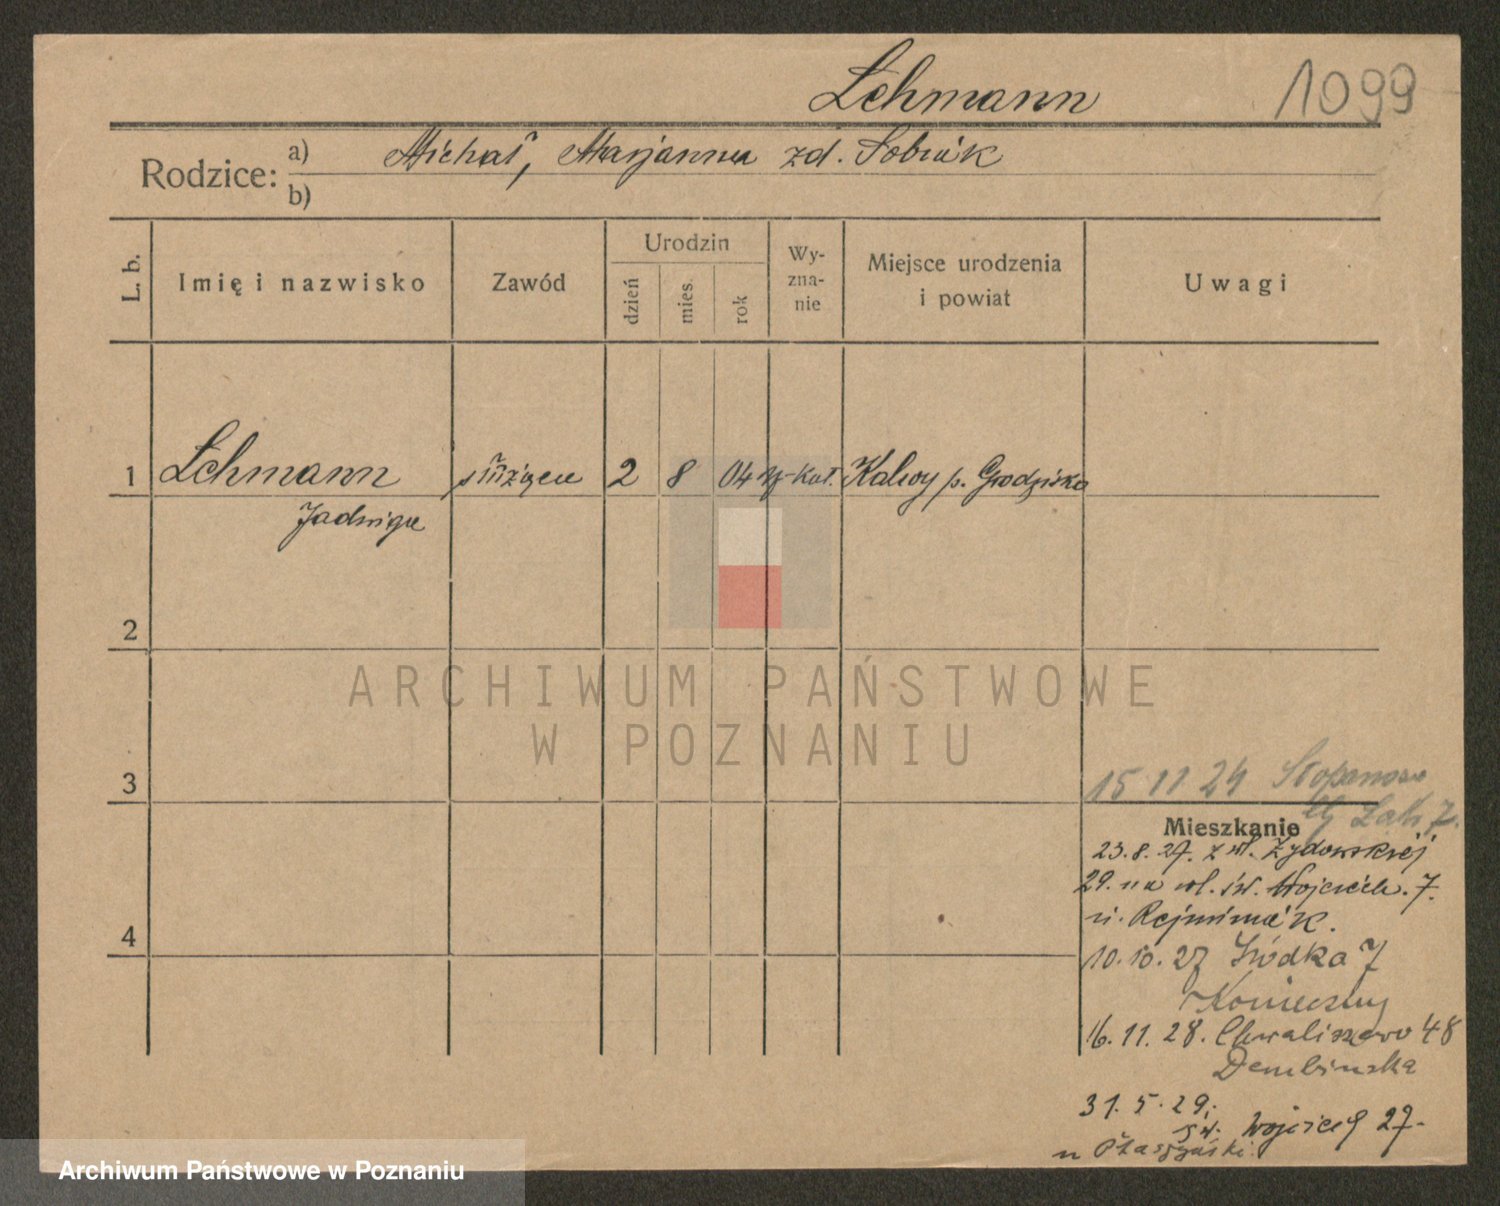 Lehmann 1099
Rodzice: a) Michał, Marjanna zd. Sobiak
b)
L. b. Imię i nazwisko Zawód Urodzin dzień mies. rok Wyznanie Miejsce urodzenia i powiat Uwagi
1 Lehmann służąca 2 8 04 rz-kat. Kalwy p. Grodzisko
Jadwiga
2
ARCHIWUM PAŃSTWOWE
W POZNANIU
3
15 11 24
Mieszkanie
23.8.27. z ul. Żydowskiej
29. na ul. św. Wojciech. 7.
u. Rejminiak.
4
10.10.27 Łódka 7
Konieczny
16.11.28. Chwaliszewo 48
Dembinska
31.5.29.
św. Wojciech 27-
u
Archiwum Państwowe w Poznaniu